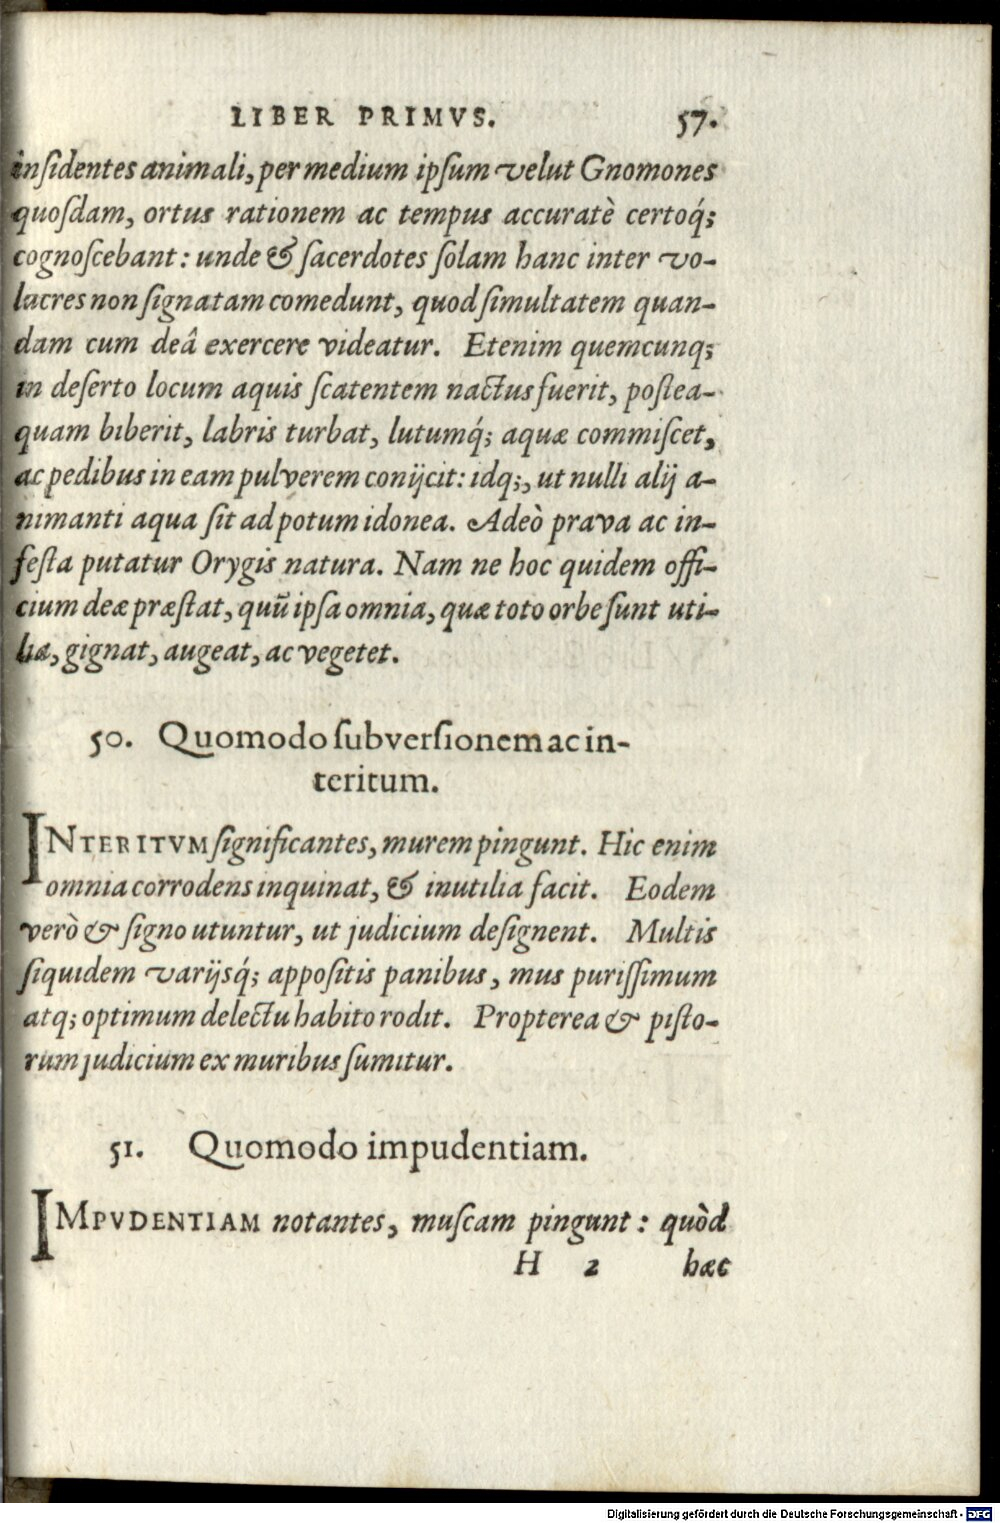 LIBER PRIMVS. 57.
inſidentes animali, per medium ipſum velut Gnomones
quoſdam, ortus rationem ac tempus accuratè certoq́;
cognoſcebant: unde & ſacerdotes ſolam hanc inter vo-
lucres non ſignatam comedunt, quod ſimultatem quan-
dam cum deâ exercere videatur. Etenim quemcunq;
in deſerto locum aquis ſcatentem nactus fuerit, poſtea-
quam biberit, labris turbat, lutumq́; aquæ commiſcet,
ac pedibus in eam pulverem conijcit: idq;, ut nulli alij a-
nimanti aqua ſit ad potum idonea. Adeò prava ac in-
feſta putatur Orygis natura. Nam ne hoc quidem offi-
cium deæ præſtat, quũ ipſa omnia, quæ toto orbe ſunt uti-
lia, gignat, augeat, ac vegetet.
50. Quomodo ſubverſionem ac in-
teritum.
INTERITVM ſignificantes, murem pingunt. Hic enim
omnia corrodens inquinat, & inutilia facit. Eodem
verò & ſigno utuntur, ut judicium deſignent. Multis
ſiquidem varijsq́; appoſitis panibus, mus puriſſimum
atq; optimum delectu habito rodit. Propterea & piſto-
rum judicium ex muribus ſumitur.
51. Quomodo impudentiam.
IMPVDENTIAM notantes, muſcam pingunt: quòd
H 2 hæc
Digitalisierung gefördert durch die Deutsche Forschungsgemeinschaft - DFG